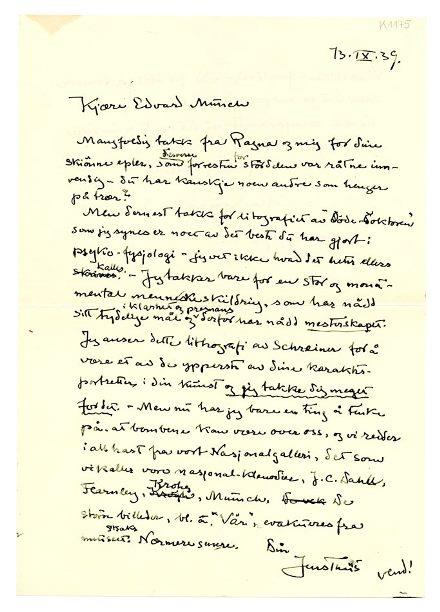 K1175
13.IX.39.
Kjære Edvard Munch
Mangfoldig takk fra Ragna og mig for dine
skiønne epler, som desverre forresten for størdelen var råtne inn-
vendig – du har kanskje noen andre som henger
på trær?
Men dernest takk for litografiet av "Døde-Doktoren"
som jeg synes er noe av det beste du har gjort i
psyko-fysjologi – jeg vet ikke hvad det heter ellers
kalles. – Jeg takker bare for en stor og monu-
mental menneskeskildring, som har nådd
sitt tydelige mål i klarhet og pregnans og derfor har nådd mesterskapet.
Jeg anser dette lithografi av Schreiner for å
være et av de ypperste av dine karakter-
portretter i din kunst og jeg takke dig meget
for det. – Men nu har jeg bare en ting å tenke
på, at bombene kan være over oss, og vi redder
i all hast fra vort Nasjonalgalleri, det som
vi kaller vore nasjonal-klenodier, J.C. Dahl,
Fearnley, Krohg, Munch. De
store billeder, bl. a. "Vår", evakueres fra
museet straks. Nærmere senere. Din
Jens Thiis
vend!